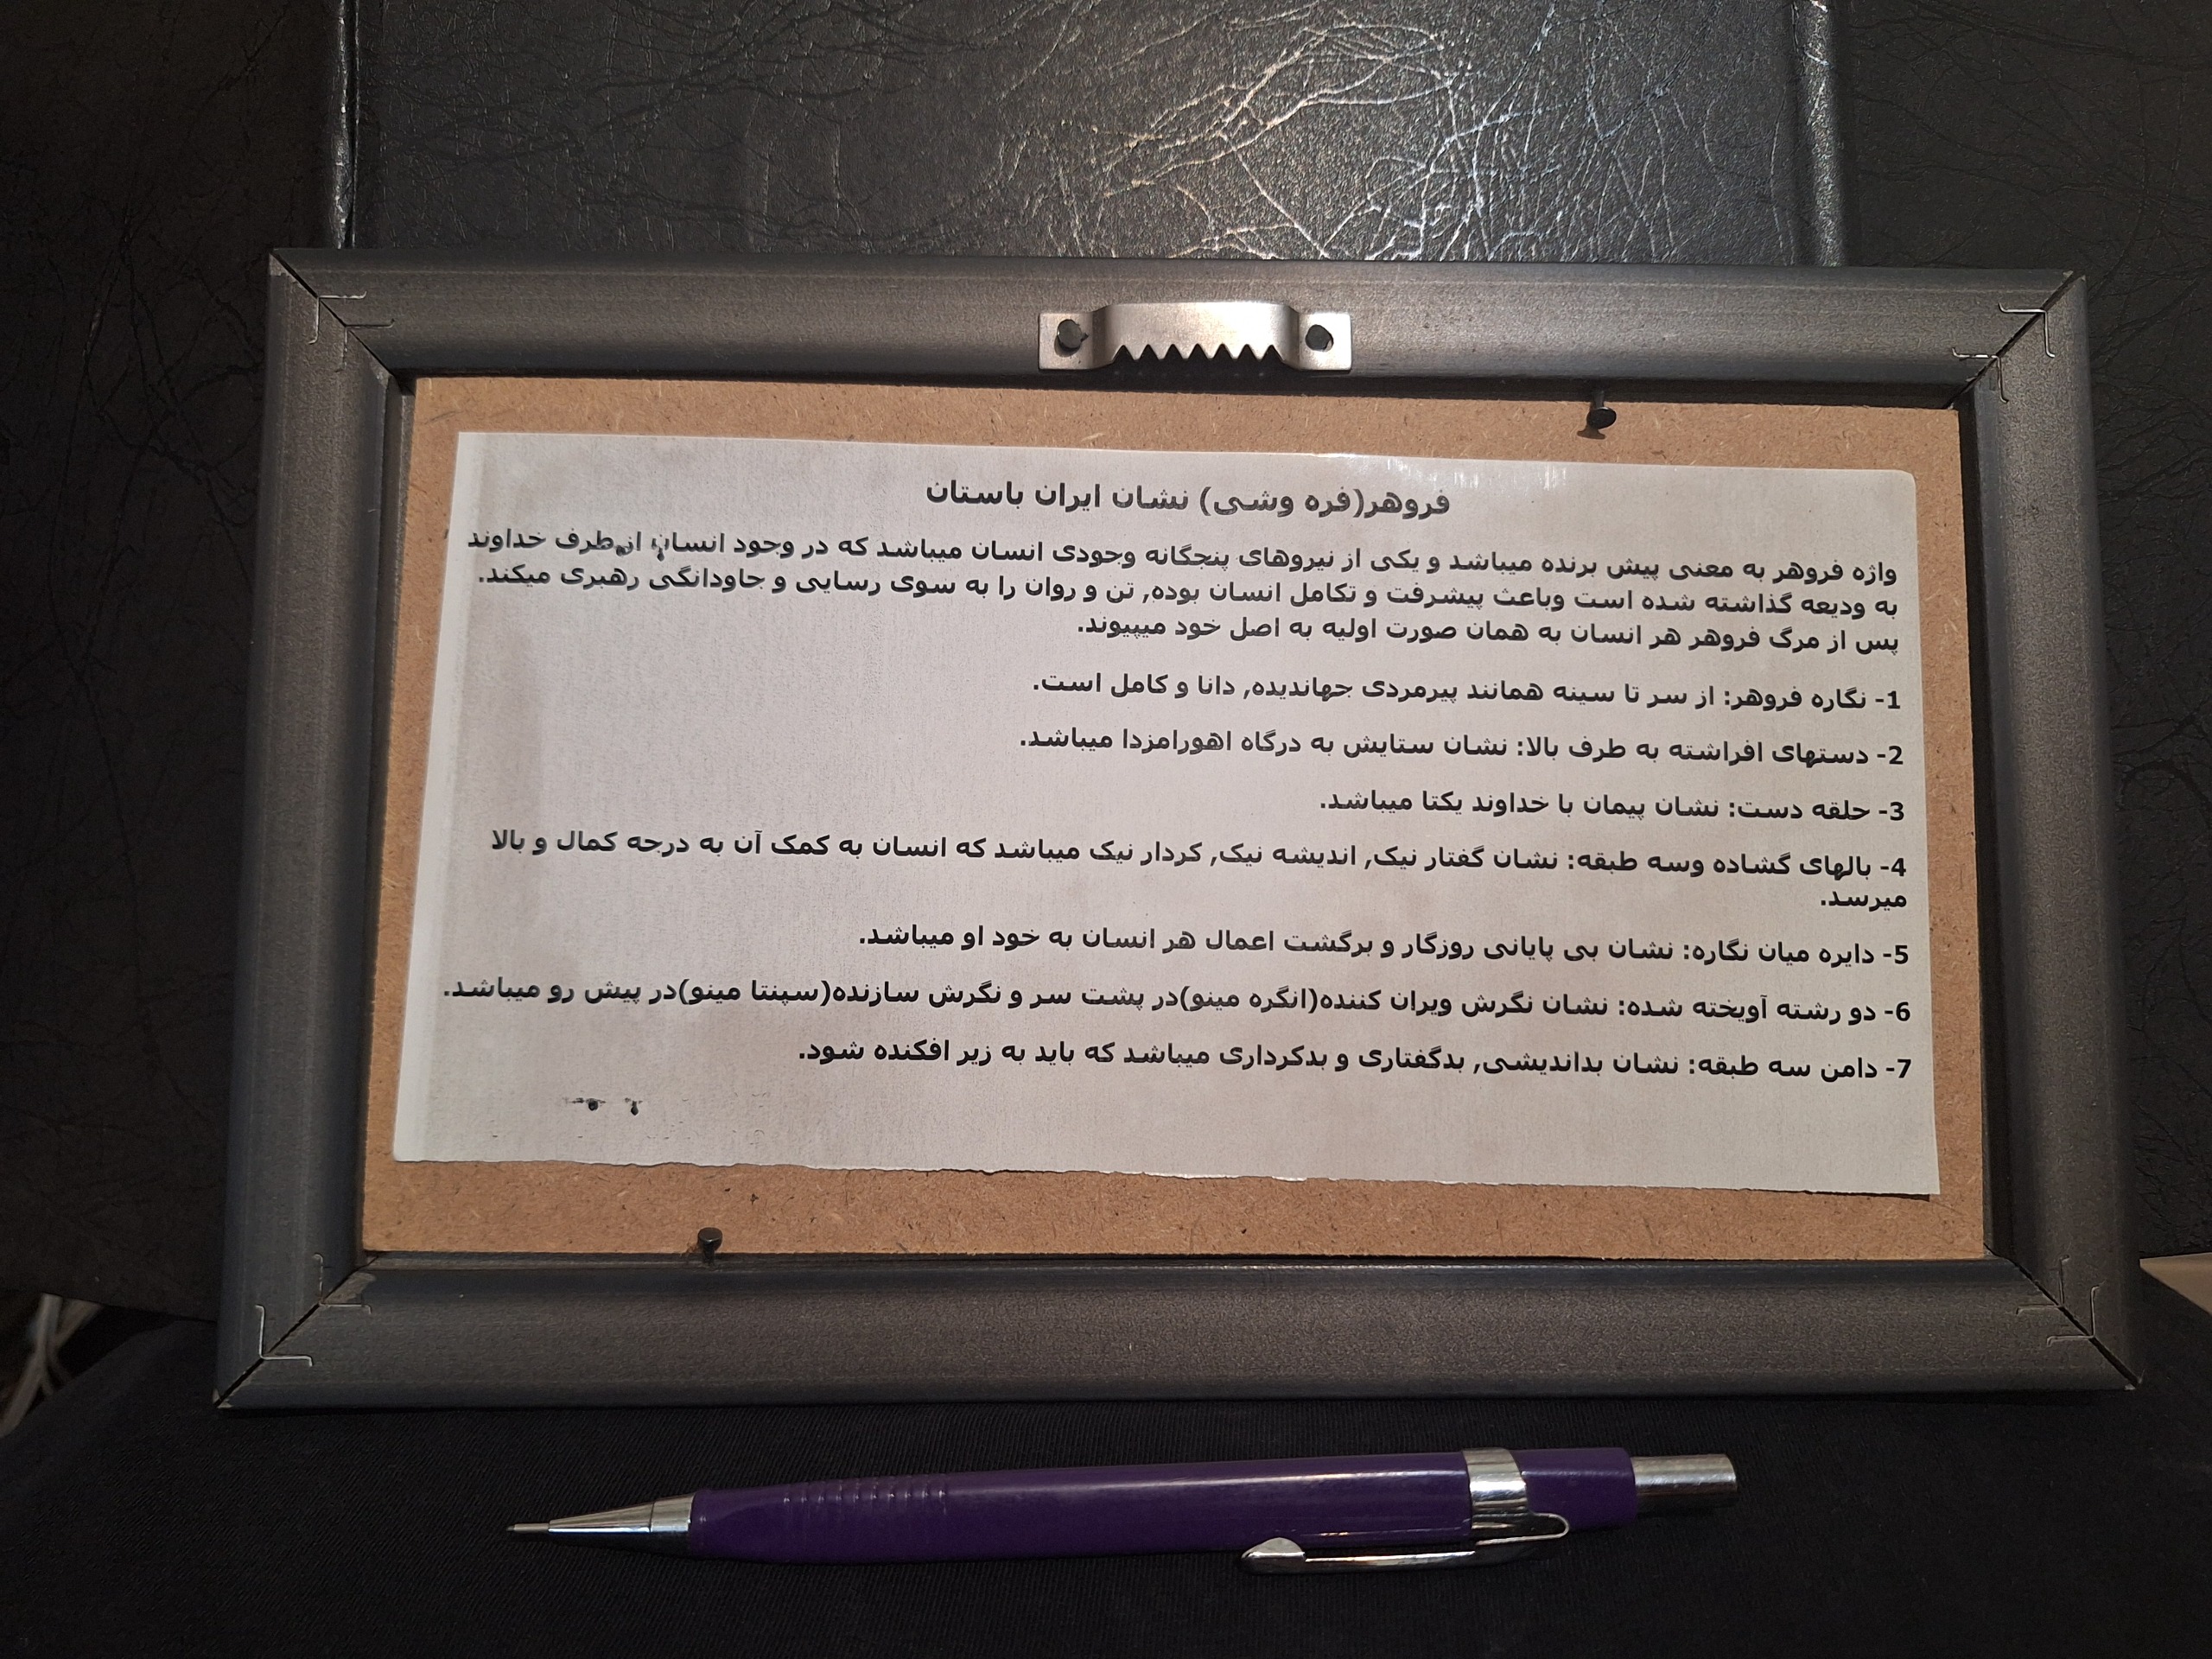 فروهر(فره وشی) نشان ایران باستان
واژه فروهر به معنی پیش برنده میباشد و یکی از نیروهای پنجگانه وجودی انسان میباشد که در وجود انسان از طرف خداوند
به ودیعه گذاشته شده است وباعث پیشرفت و تکامل انسان بوده, تن و روان را به سوی رسایی و جاودانگی رهبری میکند.
پس از مرگ فروهر هر انسان به همان صورت اولیه به اصل خود میپیوند.
1- نگاره فروهر: از سر تا سینه همانند پیرمردی جهاندیده, دانا و کامل است.
2- دستهای افراشته به طرف بالا: نشان ستایش به درگاه اهورامزدا میباشد.
3- حلقه دست: نشان پیمان با خداوند یکتا میباشد.
4- بالهای گشاده وسه طبقه: نشان گفتار نیک, اندیشه نیک, کردار نیک میباشد که انسان به کمک آن به درجه کمال و بالا
میرسد.
5- دایره میان نگاره: نشان بی پایانی روزگار و برگشت اعمال هر انسان به خود او میباشد.
6- دو رشته آویخته شده: نشان نگرش ویران کننده(انگره مینو)در پشت سر و نگرش سازنده(سپنتا مینو)در پیش رو میباشد.
7- دامن سه طبقه: نشان بداندیشی, بدگفتاری و بدکرداری میباشد که باید به زیر افکنده شود.